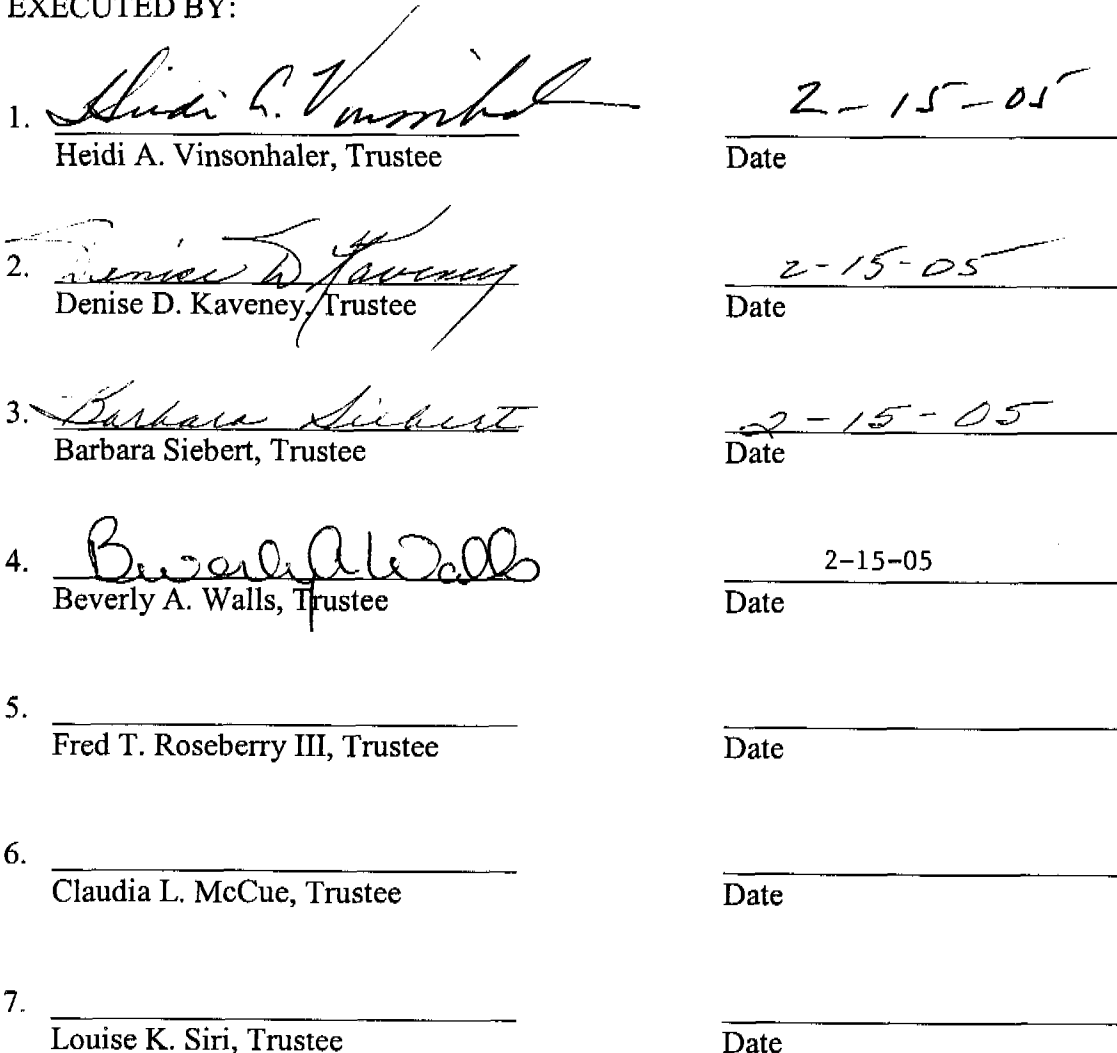 EXECUTED BY:
1. Heidi A. Vinsonhaler 2-15-05
Heidi A. Vinsonhaler, Trustee Date
2. Denise D Kaveney 2-15-05
Denise D. Kaveney, Trustee Date
3. Barbara Siebert 2-15-05
Barbara Siebert, Trustee Date
4. Beverly A Walls 2-15-05
Beverly A. Walls, Trustee Date
5.
Fred T. Roseberry III, Trustee Date
6.
Claudia L. McCue, Trustee Date
7.
Louise K. Siri, Trustee Date